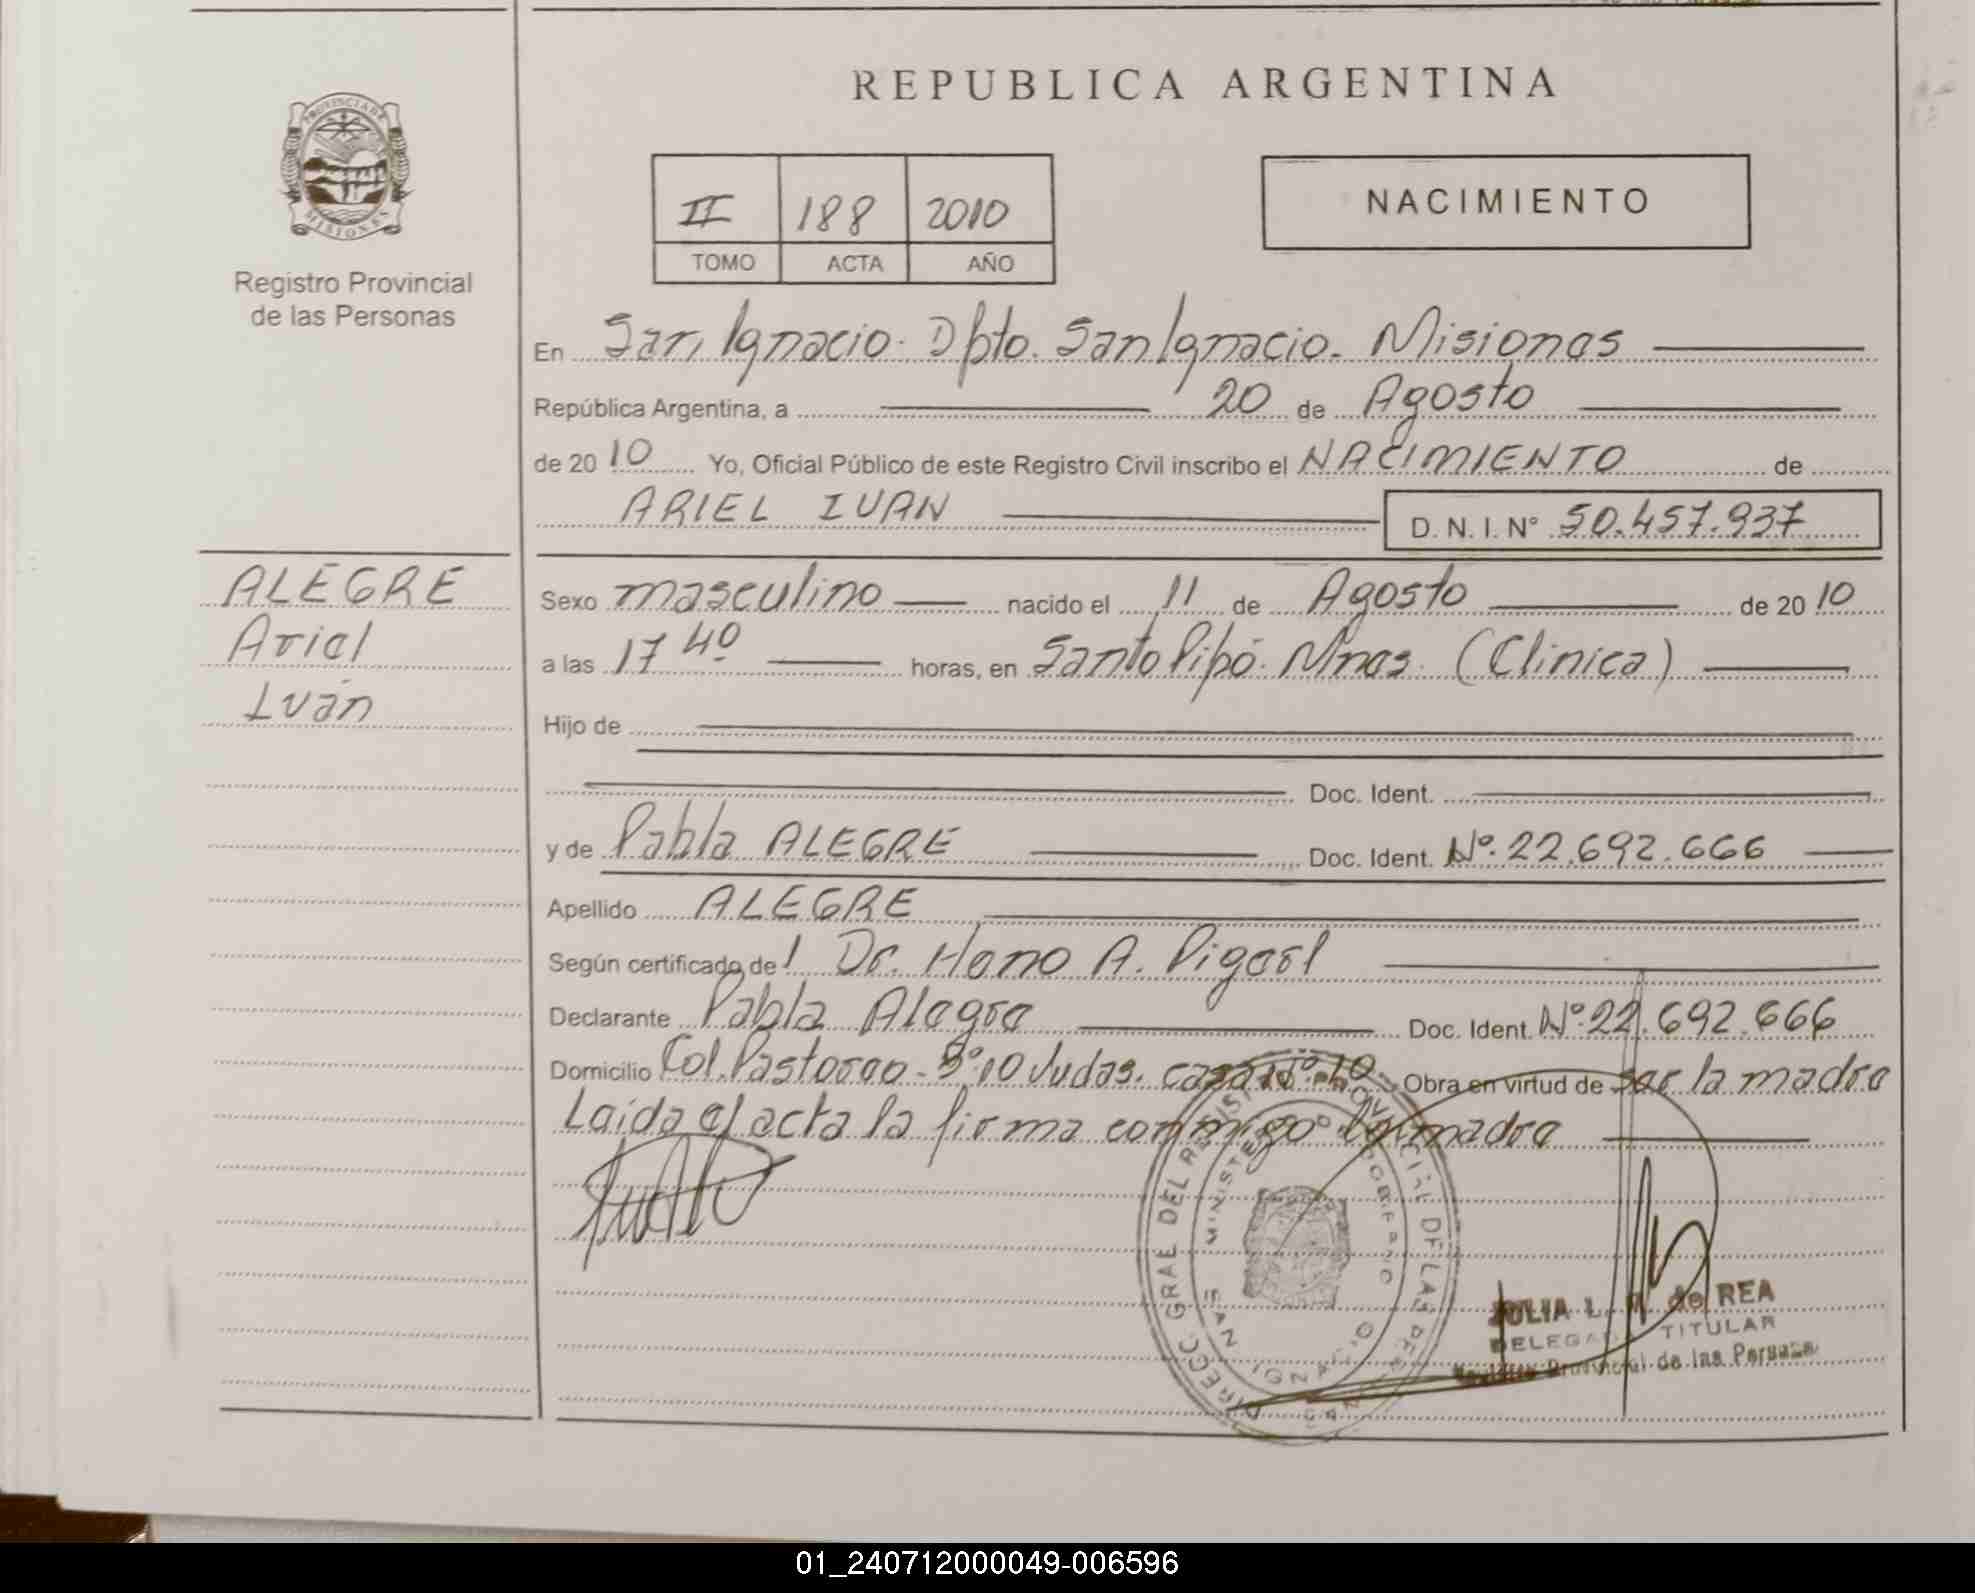 REPUBLICA ARGENTINA
PROVINCIA DE
MISIONES
Registro Provincial
de las Personas
II 188 2010
TOMO ACTA AÑO
NACIMIENTO
En San Ignacio. Dpto. San Ignacio. Misiones
República Argentina, a 20 de Agosto
de 2010 Yo, Oficial Público de este Registro Civil inscribo el NACIMIENTO de
ARIEL IVAN D. N. I. N° 50.457.937
ALEGRE
Ariel
Iván
Sexo masculino nacido el 11 de Agosto de 2010
a las 17 40 horas, en Santo Pipó. Mnes. (Clinica)
Hijo de
Doc. Ident.
y de Pabla ALEGRE Doc. Ident. Nº. 22.692.666
Apellido ALEGRE
Según certificado del Dr. A.
Declarante Pabla Alegre Doc. Ident. Nº. 22.692.666
Domicilio Col. Pastoreo - Bº 10 Judas. casa Nº 10 Obra en virtud de ser la madre
Leída el acta la firma conmigo la madre
DIRECC GRAL DEL REGISTRO PROVINCIAL DE LAS PERSONAS
MINISTERIO DE GOBIERNO
SAN IGNACIO
JULIA L. de REA
DELEGADA TITULAR
Registro Provincial de las Personas
01_240712000049-006596